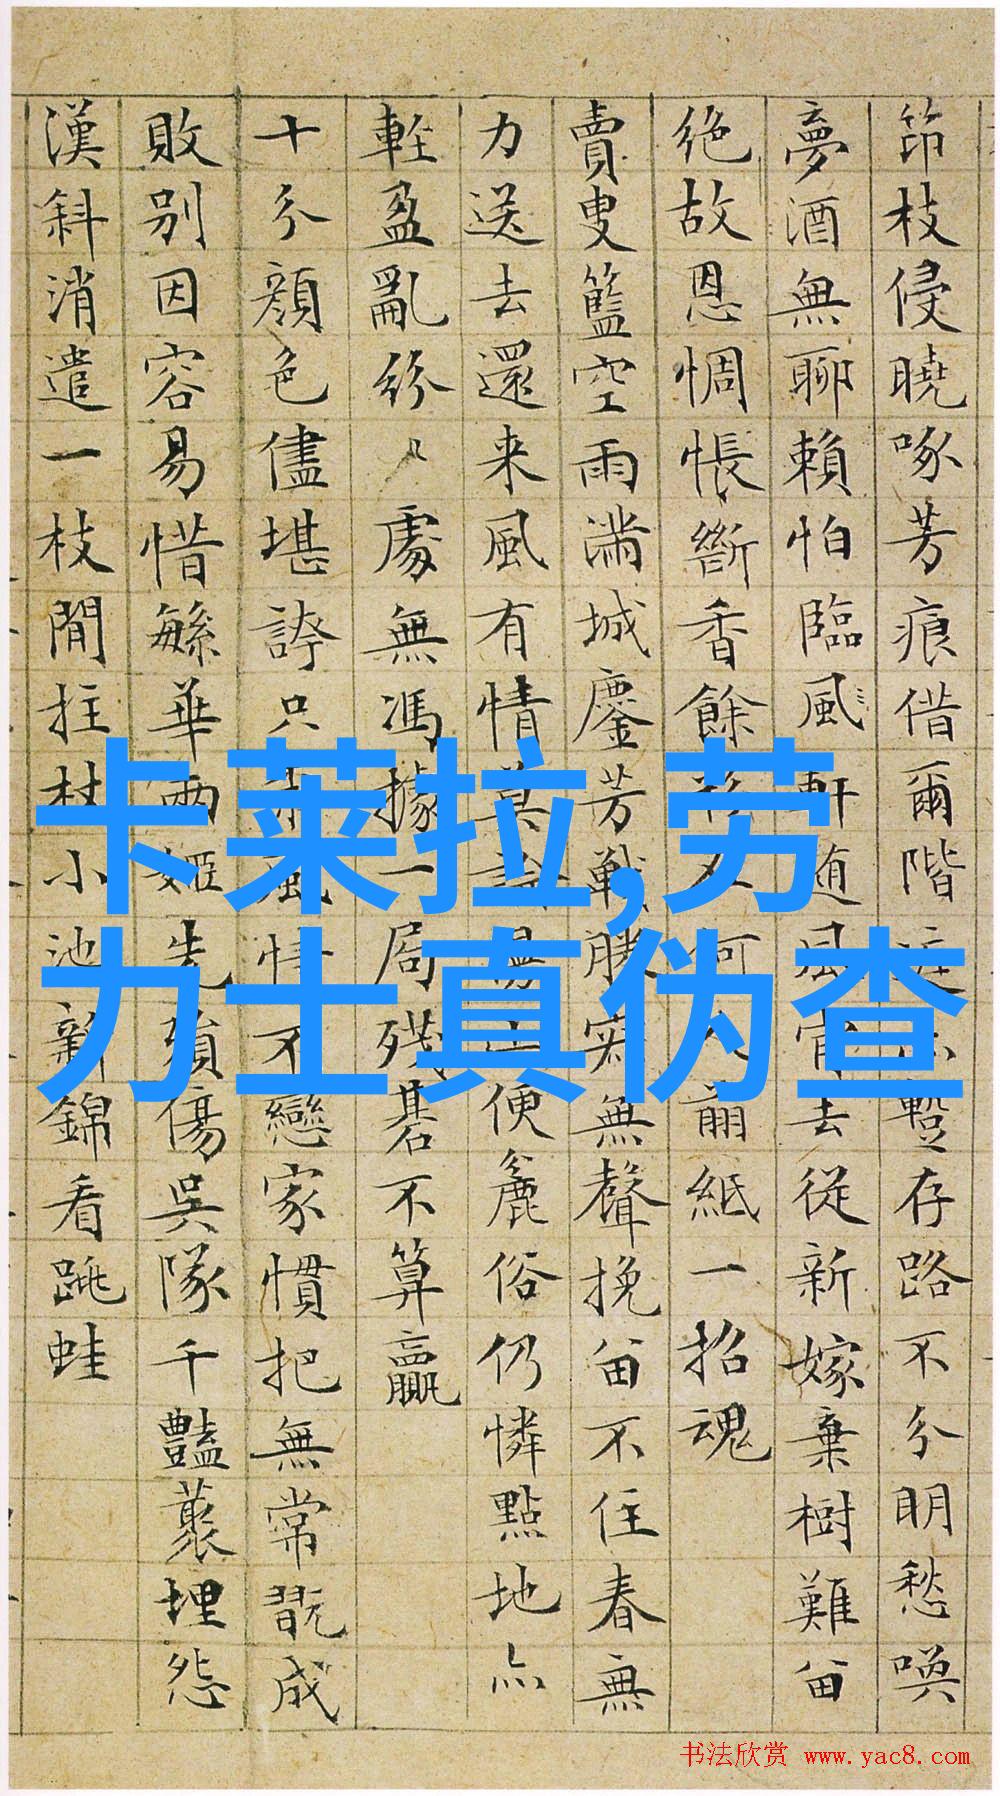 筇枝侵曉啄芳痕借爾階存路不分明愁喚
夢酒無聊賴怕臨風軒随風去從新嫁棄樹難留
絶故恩惆悵斷香餘何人翦紙一招魂
賣叟籃空雨滿城塵芳戰勝寂無聲挽留不住春無
力送去還来風有情莫論便麄俗仍憐點地亦
輕盈亂紛〻處無馮據一局殘碁不算贏
十分顔色儘堪誇只風情不戀家慣把無常翫成
敗別因容易惜繁華兩姬先殞傷吳隊千豔叢埋怨
漢斜消遣一枝閒拄杖小池新錦看跳蛙
卡莱拉,劳
力士真伪查
书法欣赏 www.yac8.com